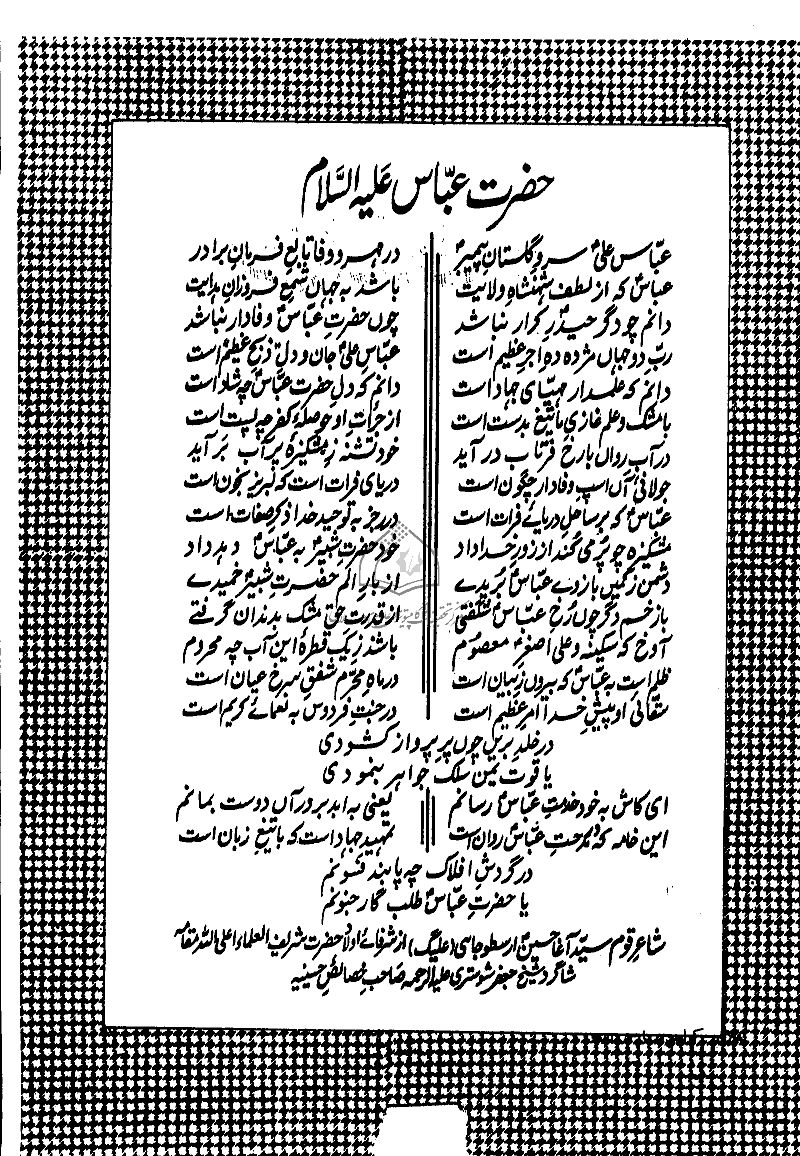 حضرت عبّاس عَلیہ السَّلام
عبّاس علیؑ سروِ گلستانِ پیمبرؐ در مہر و وفا تابعِ فرمانِ برادر
عباسؑ کہ از لطفِ شہنشاہِ ولایت باشد بہ جہاں شمعِ فروزانِ ہدایت
دانم چو دگر حیدرِ کرار نباشد چوں حضرتِ عبّاسؑ وفادار نباشد
ربِّ دو جہاں مژدہ دہِ اجرِ عظیم است عبّاس علیؑ جان و دلِ ذبحِ عظیم است
دانم کہ علمدار مہیّای جہاد است دانم کہ دلِ حضرت عبّاسؑ چہ شاد است
با مشک و علم غازیِ ما تیغ بدست است از جرأتِ او حوصلۂ کفر چہ پست است
در آبِ رواں بارخِ فرتاب در آید خود تشنہ ز مشکیزۂ پر آب بر آید
جولانیِ آں اسپِ وفادار چگون است دریای فرات است کہ لبریز بخون است
عبّاسؑ کہ بر ساحلِ دریائے فرات است در رجز بہ توحیدِ خدا ذکرِ صفات است
مشکیزہ چو پُر می کند از زورِ خداداد خود حضرتِ شبیرؑ بہ عبّاسؑ دہد داد
دشمن زکمیں بازوے عبّاسؑ بُریدے از بارِ الم حضرتِ شبیرؑ خمیدے
باز خم دگر چوں رُخِ عبّاسؑ شگفتی از قدرتِ حق مشک بدندان گرفتے
آوخ کہ سکینہ و علی اصغرِ معصوم باشد ز یک قطرۂ این آب چہ محروم
ظلم است بہ عبّاسؑ کہ بیروں ز بیان است در ماہِ محرّم شفقِ سرخ عیان است
سقائیِ او پیشِ خدا امرِ عظیم است در جنتِ فردوس بہ نعمائے کریم است
در خلدِ بریں چوں پرِ پرواز کشودی
یاقوتِ یمن سلکِ جواہر بنمودی
ای کاش بہ خود خدمتِ عبّاسؑ رسانم یعنی بہ ابد بر درِ آں دوست بمانم
این خامہ کہ در مدحتِ عبّاسؑ روان است تمہیدِ جہاد است کہ با تیغِ زبان است
در گردشِ افلاک چہ پابندِ فسونم
یا حضرتِ عبّاسؑ طلب گارِ جنونم
شاعرِ قوم سیّد آغا حسین ارسطو جاہی (علیگ) از شرفائے اولادِ حضرت شریف العلماء اعلی اللہ مقامہ
شاگردِ شیخ جعفر شوستری علیہ الرحمہ صاحبِ خصائصِ حسینیہ